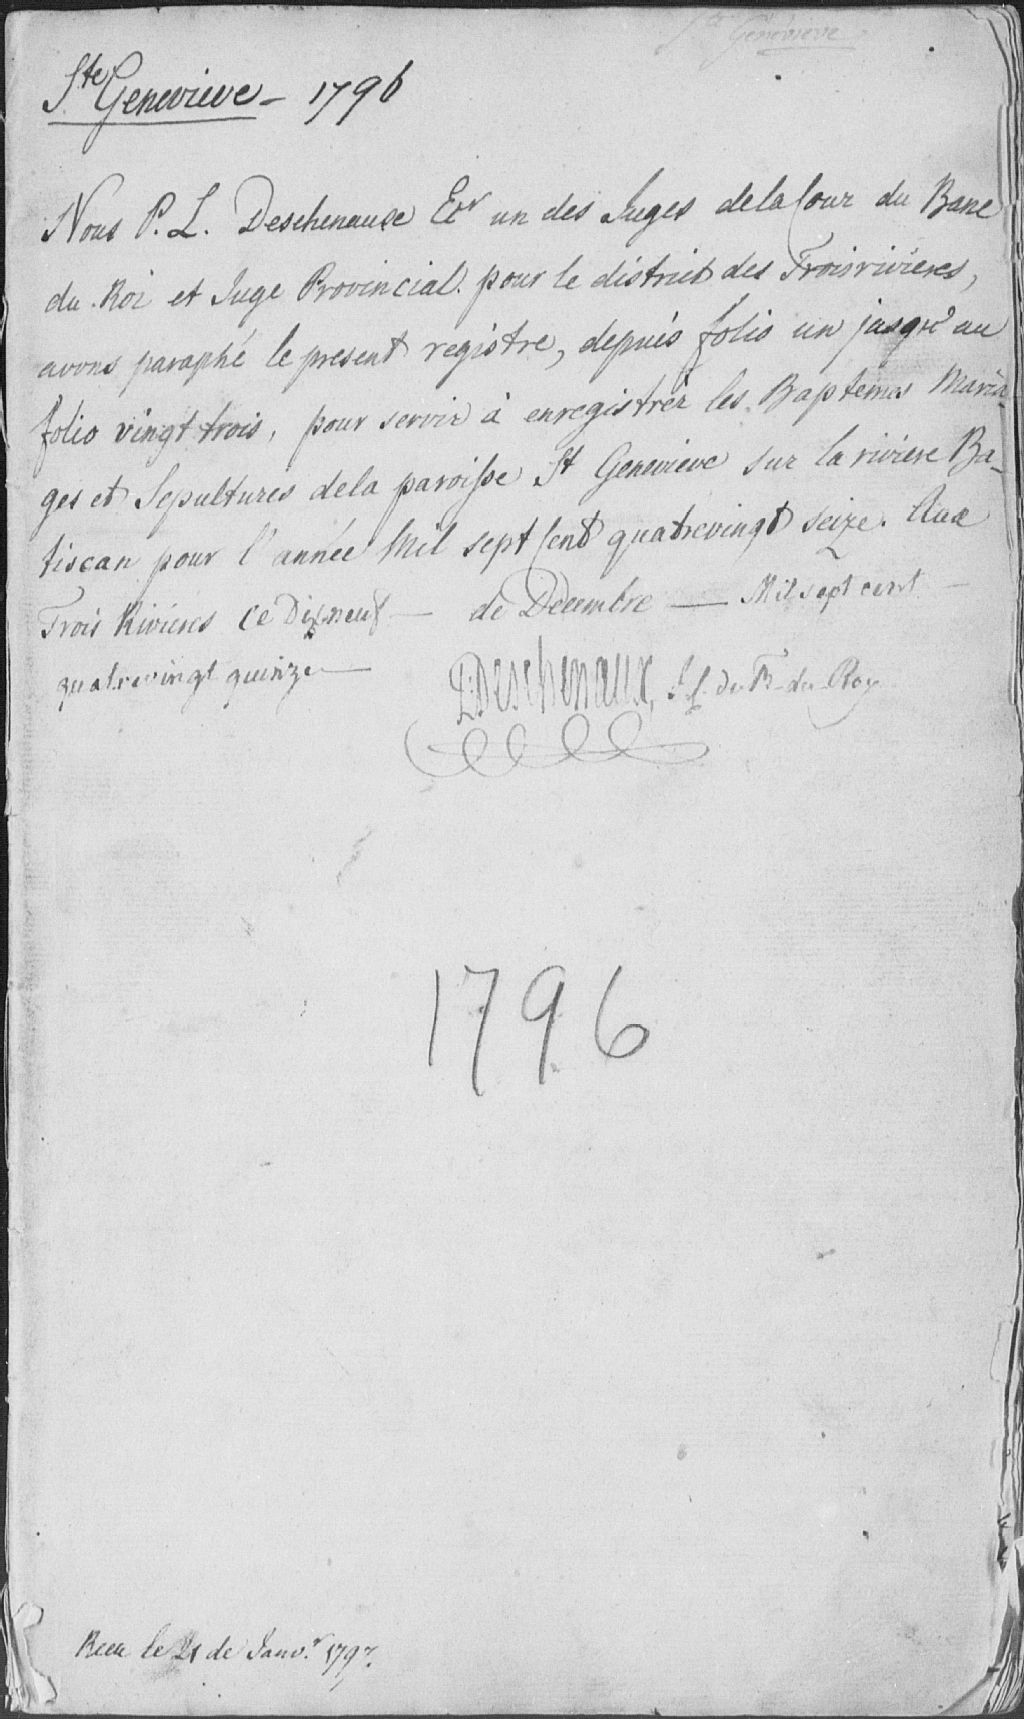 Ste Genevieve
Ste Genevieve - 1796
Nous P. L. Deschenaux Ecr un des Juges de la Cour du Banc
du Roi et Juge Provincial pour le district des Troisrivieres,
avons paraphé le present registre, depuis folio un jusqu'au
folio vingt trois, pour servir à enregistrer les Baptemes Maria-
ges et Sepultures dela paroisse St Genevieve sur la riviere Ba-
tiscan pour l'année Mil sept Cent quatrevingt seize. Aux
Trois Rivieres Ce Dixneuf — de Decembre — Mil sept cent —
quatrevingt quinze —
P: L: Deschenaux, J. C. du B. du Roy
1796
Receu le 21 de Janv.r 1797.